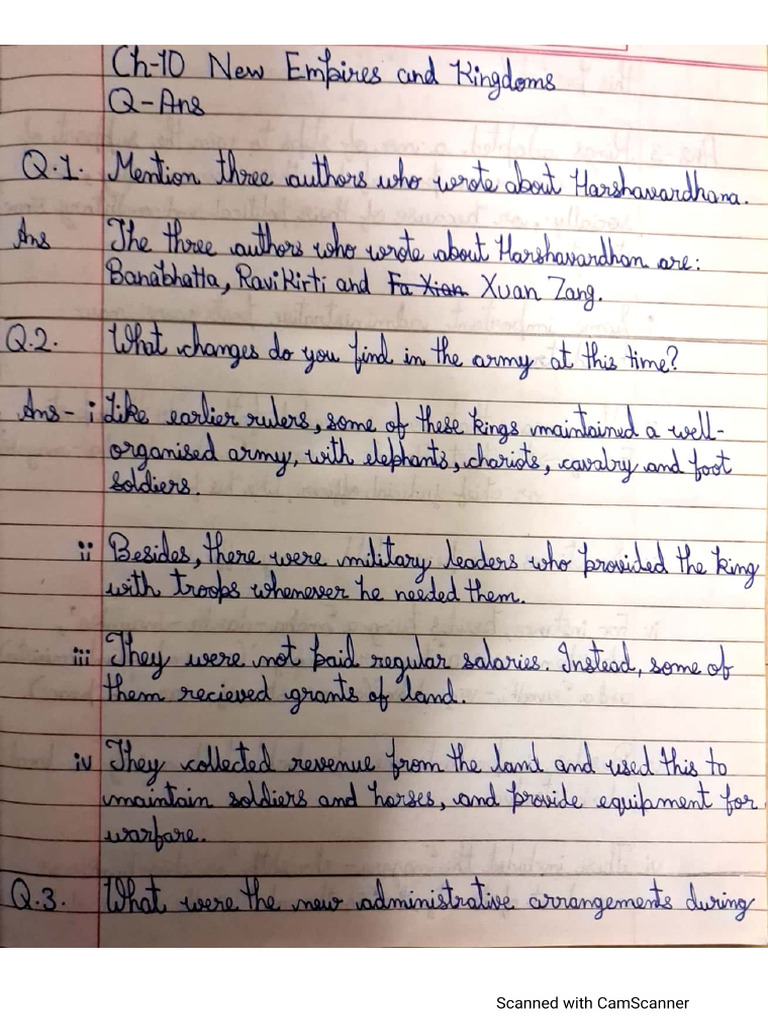 Ch-10 New Empires and Kingdoms
Q-Ans
Q.1. Mention three authors who wrote about Harshavardhana.
Ans The three authors who wrote about Harshavardhan are:
Banabhatta, Ravikirti and Fa Xian Xuan Zang.
Q.2. What changes do you find in the army at this time?
Ans - i Like earlier rulers, some of these kings maintained a well-
organised army, with elephants, chariots, cavalry and foot
soldiers.
ii Besides, there were military leaders who provided the king
with troops whenever he needed them.
iii They were not paid regular salaries. Instead, some of
them recieved grants of land.
iv They collected revenue from the land and used this to
maintain soldiers and horses, and provide equipment for
warfare.
Q.3. What were the new administrative arrangements during
Scanned with CamScanner